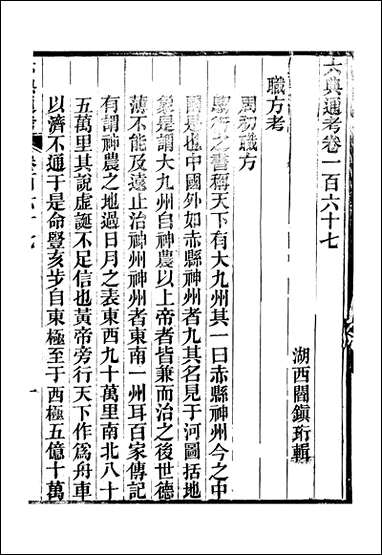 六典通考卷一百六十七
湖西閻鎮珩輯
職方考
周初職方
鄒衍之書稱天下有大九州其一曰赤縣神州今之中
國是也中國外如赤縣神州者九其名見于河圖括地
象是謂大九州自神農以上帝者皆兼而治之後世德
薄不能及遠止治神州神州者東南一州耳百家傳記
有謂神農之地過日月之表東西九十萬里南北八十
五萬里其說虛誕不足信也黃帝旁行天下作為舟車
以濟不通于是命豎亥步自東極至于西極五億十萬
一